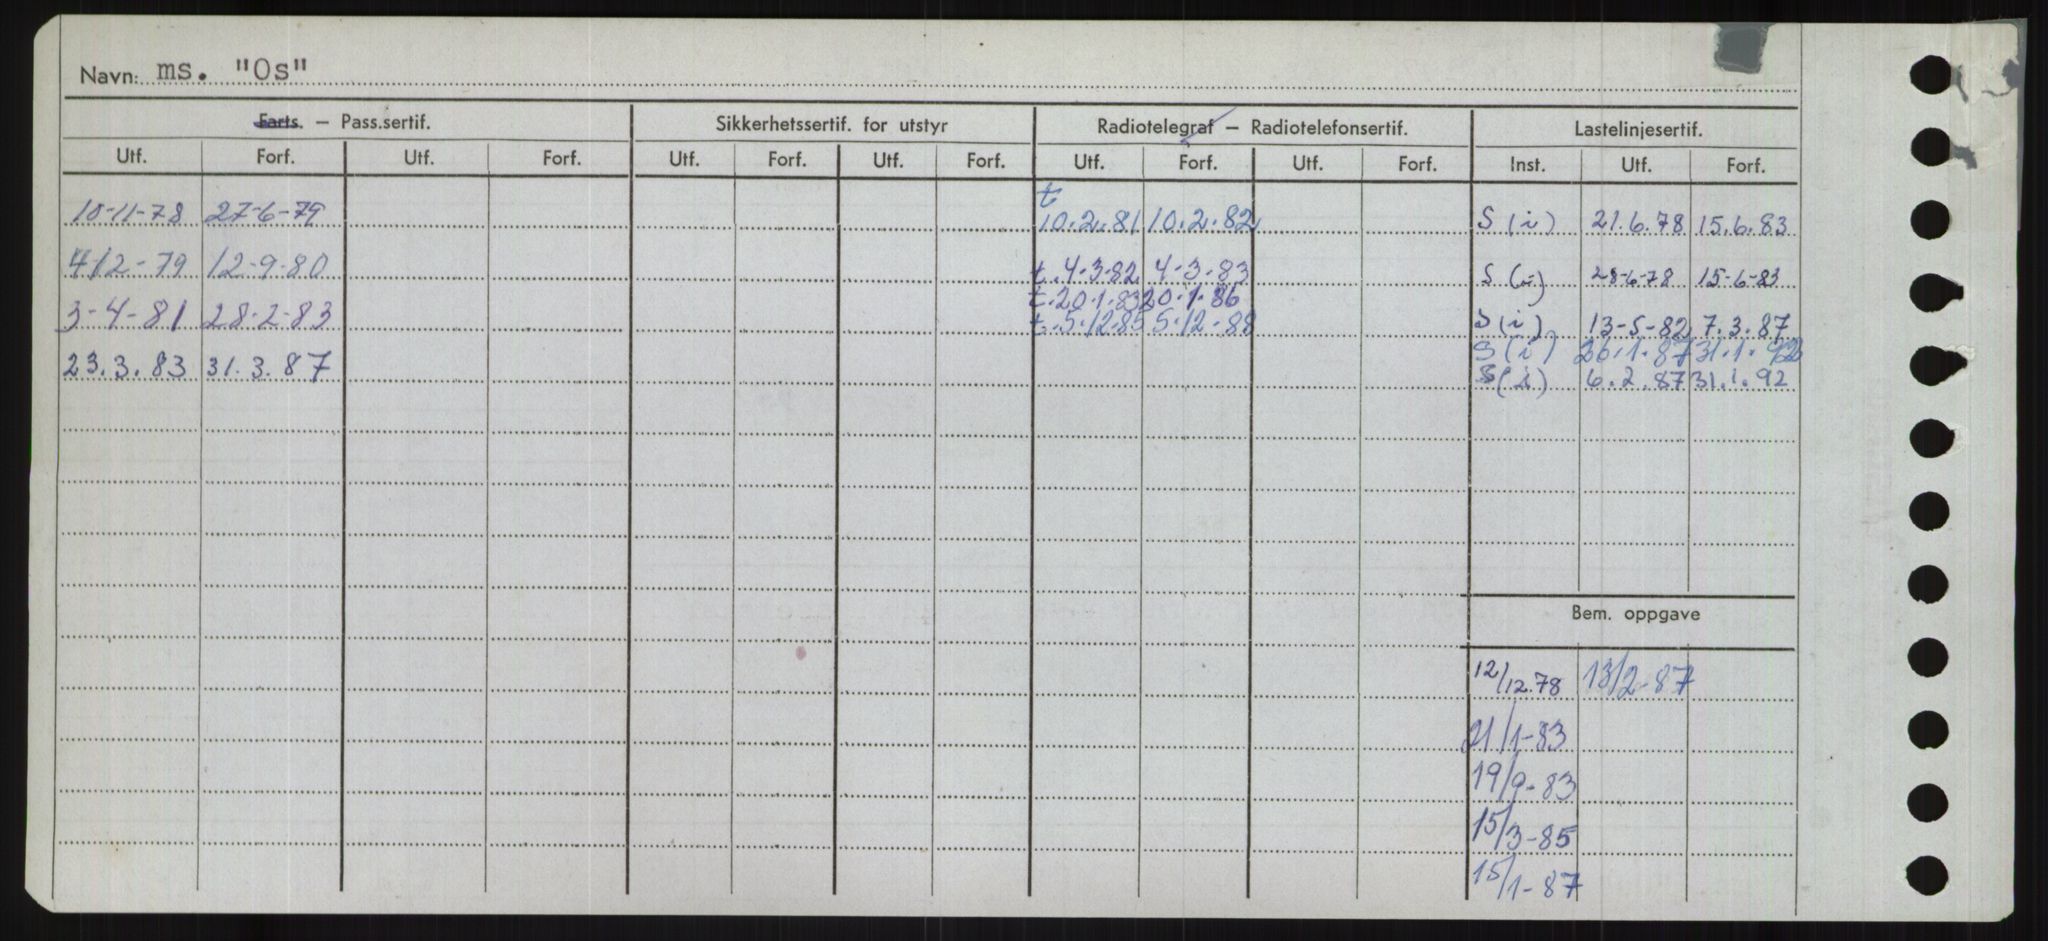 Navn: ms. "Os"
Farts. – Pass.sertif. Sikkerhetssertif. for utstyr Radiotelegraf – Radiotelefonsertif. Lastelinjesertif.
Utf. Forf. Utf. Forf. Utf. Forf. Utf. Forf. Utf. Forf. Utf. Forf. Inst. Utf. Forf.
t
10-11-78 27-6-79 10.2.81 10.2.82 S (i) 21.6.78 15.6.83
4/12-79 12-9-80 t. 4-3-82 4-3-83 S (i) 28-6-78 15-6-83
t. 20.1.83 20.1.86
3-4-81 28-2-83 t. 5.12.85 5.12-88 S (i) 13-5-82 7.3.87
S (i) 26.1.87 31.1.92
23.3.83 31.3.87 S (i) 6.2.87 31.1.92
Bem. oppgave
12/12.78 13/2-87
21/1-83
19/9-83
15/3-85
15/1-87